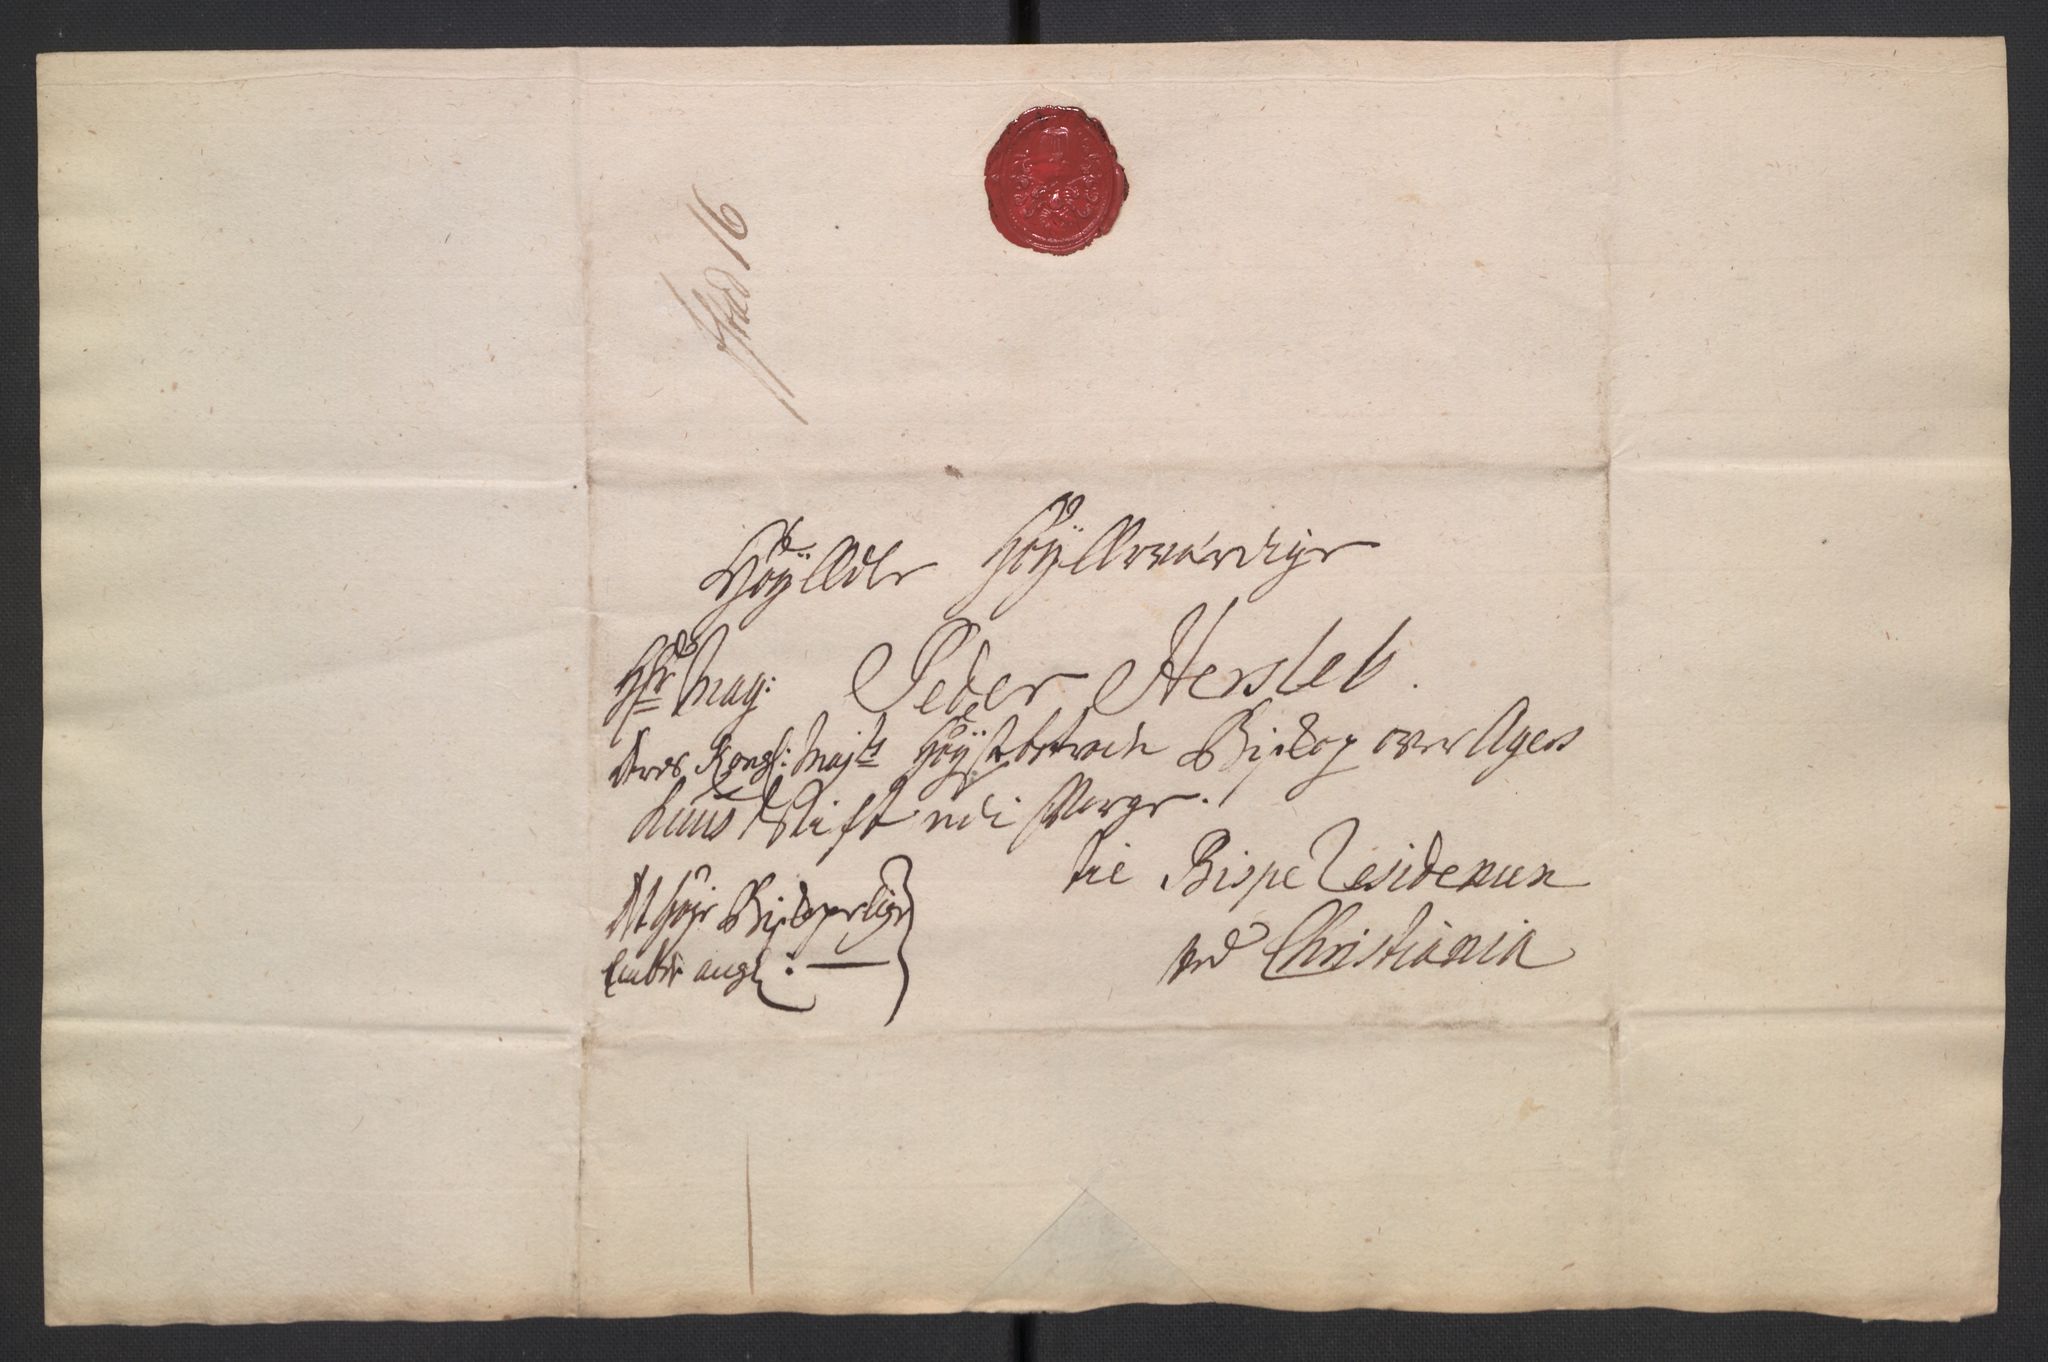 HøyÆdle HøyÆrværdige
Hr. Mag: Peder Hersleb.
Deres Kongl: Mayts Høystbetroede Biskop over Agers
huus Stift udi Norge.
til Bispe Residencen
ved Christiania
Det Høye Biskopelige
Embde angl: